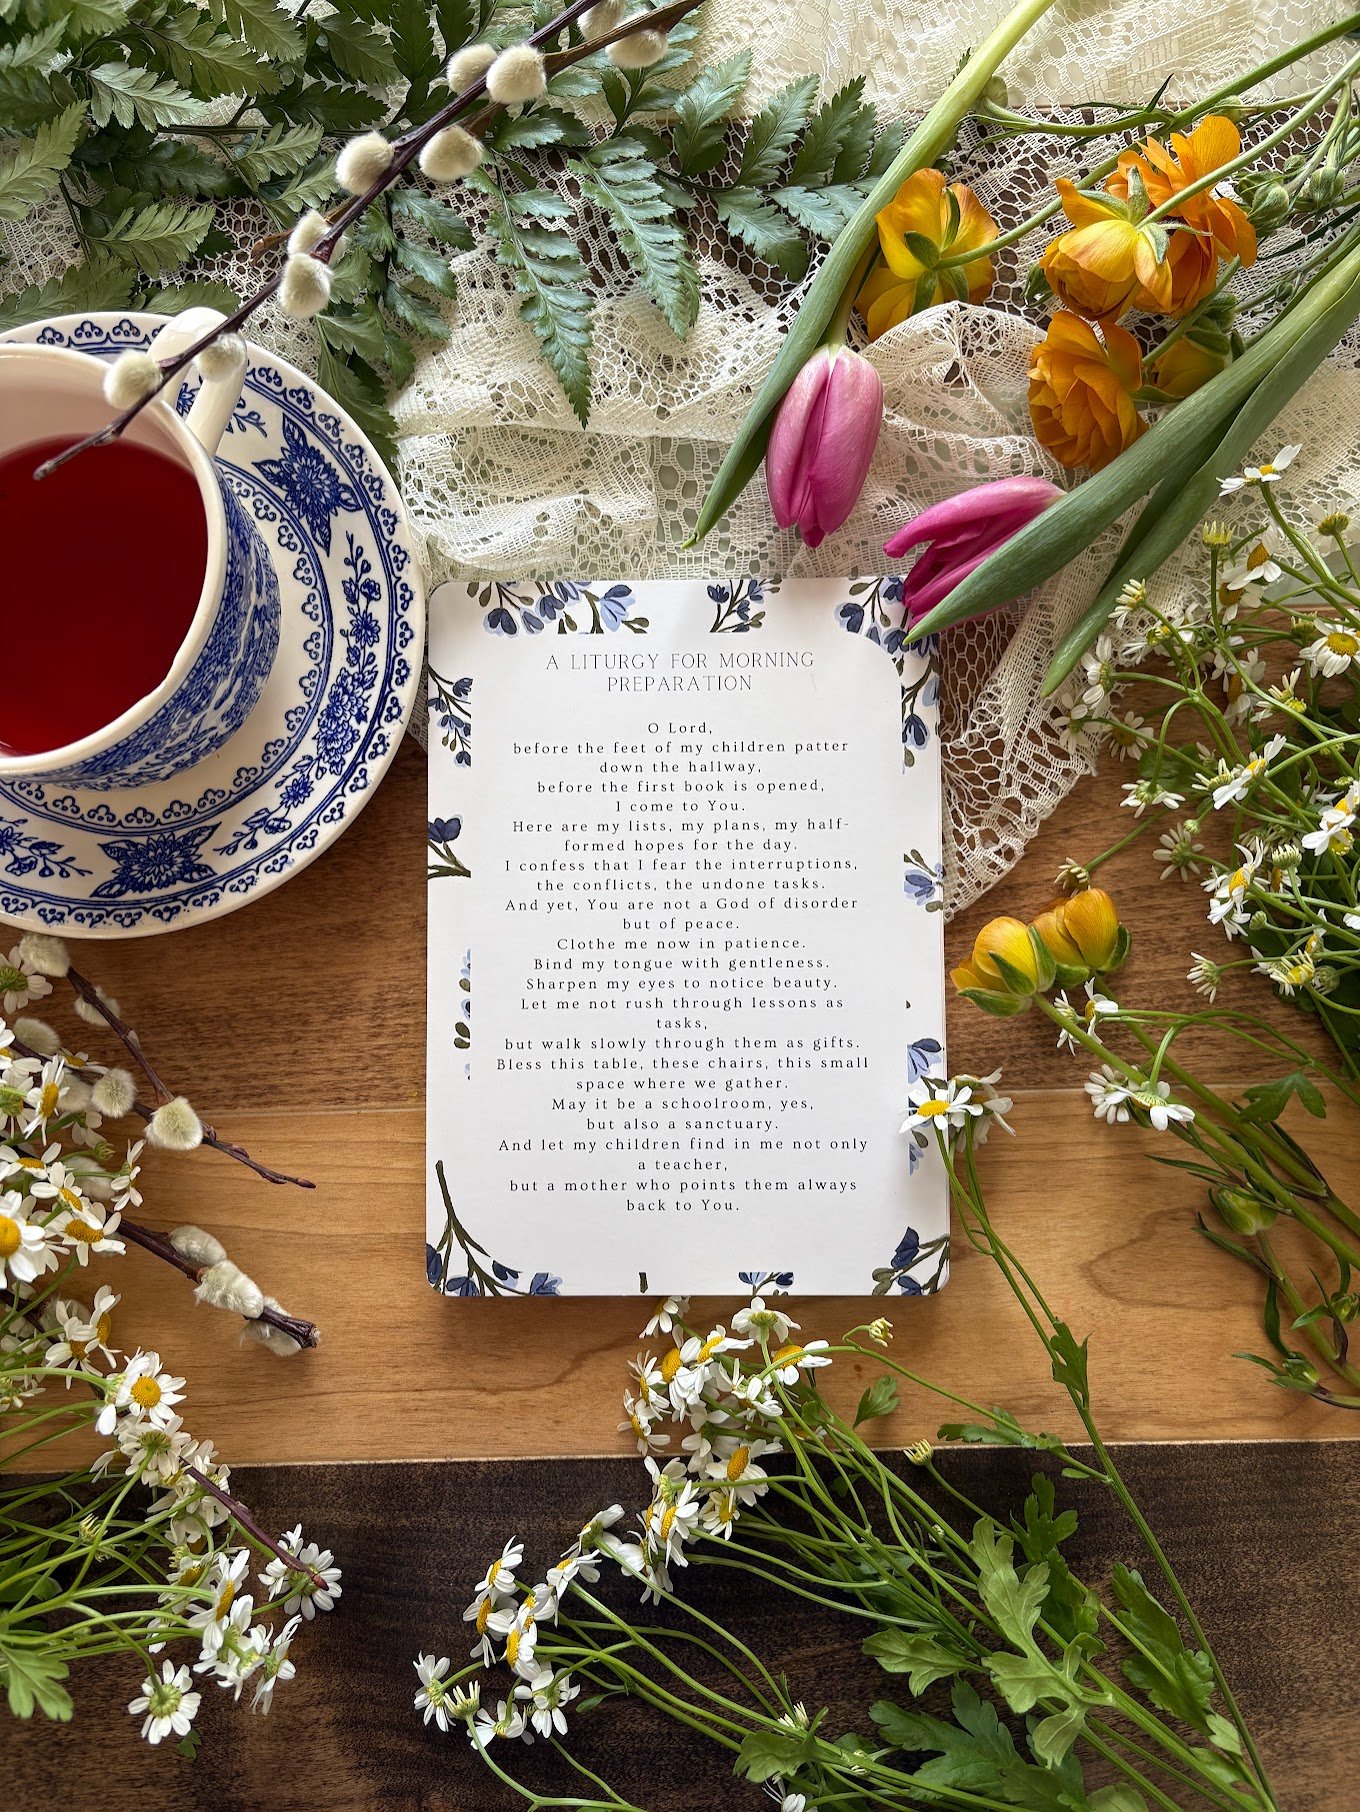 A LITURGY FOR MORNING
PREPARATION
O Lord,
before the feet of my children patter
down the hallway,
before the first book is opened,
I come to You.
Here are my lists, my plans, my half-
formed hopes for the day.
I confess that I fear the interruptions,
the conflicts, the undone tasks.
And yet, You are not a God of disorder
but of peace.
Clothe me now in patience.
Bind my tongue with gentleness.
Sharpen my eyes to notice beauty.
Let me not rush through lessons as
tasks,
but walk slowly through them as gifts.
Bless this table, these chairs, this small
space where we gather.
May it be a schoolroom, yes,
but also a sanctuary.
And let my children find in me not only
a teacher,
but a mother who points them always
back to You.